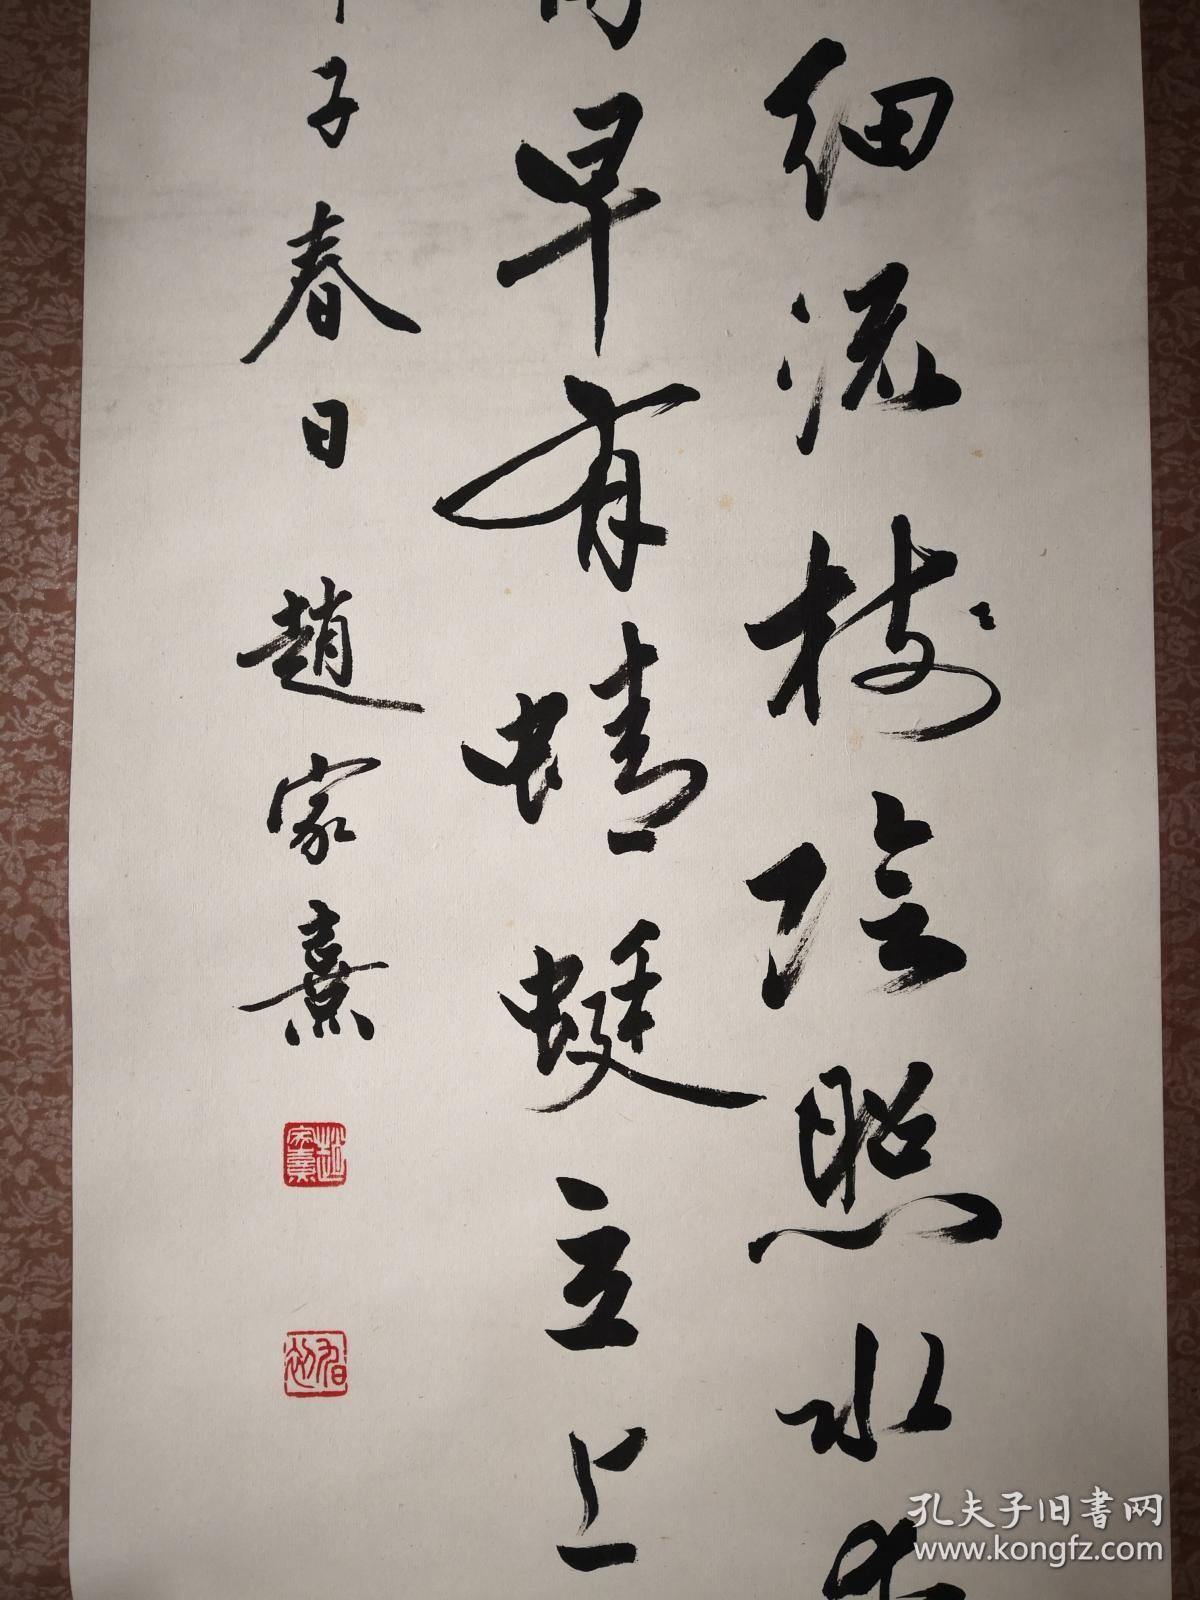 细流树阴照水
早有蜻蜓立上
子春日 趙家熹
趙家熹
孔夫子旧書网
www.kongfz.com